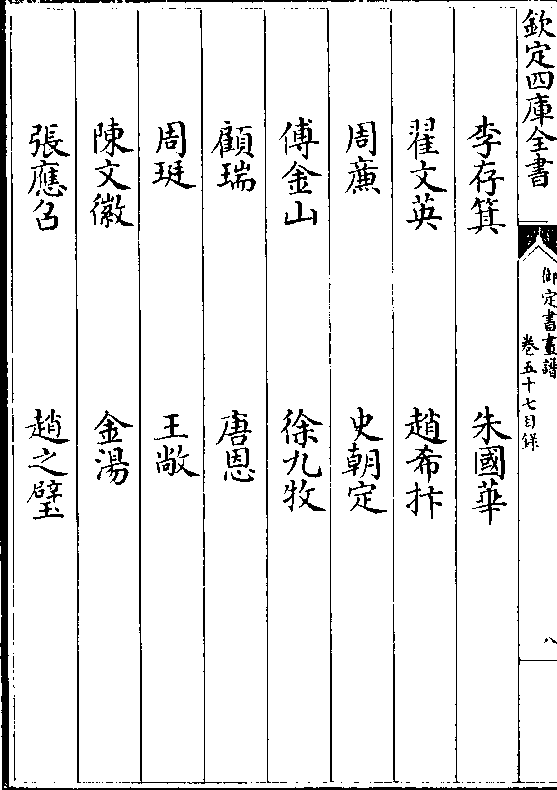 欽定四庫全書
御定書畫譜
卷五十七目錄
八
李存箕　朱國華
翟文英　趙希抃
周廉　史朝定
傅金山　徐九牧
顧瑞　唐恩
周珽　王敞
陳文徽　金湯
張應召　趙之璧